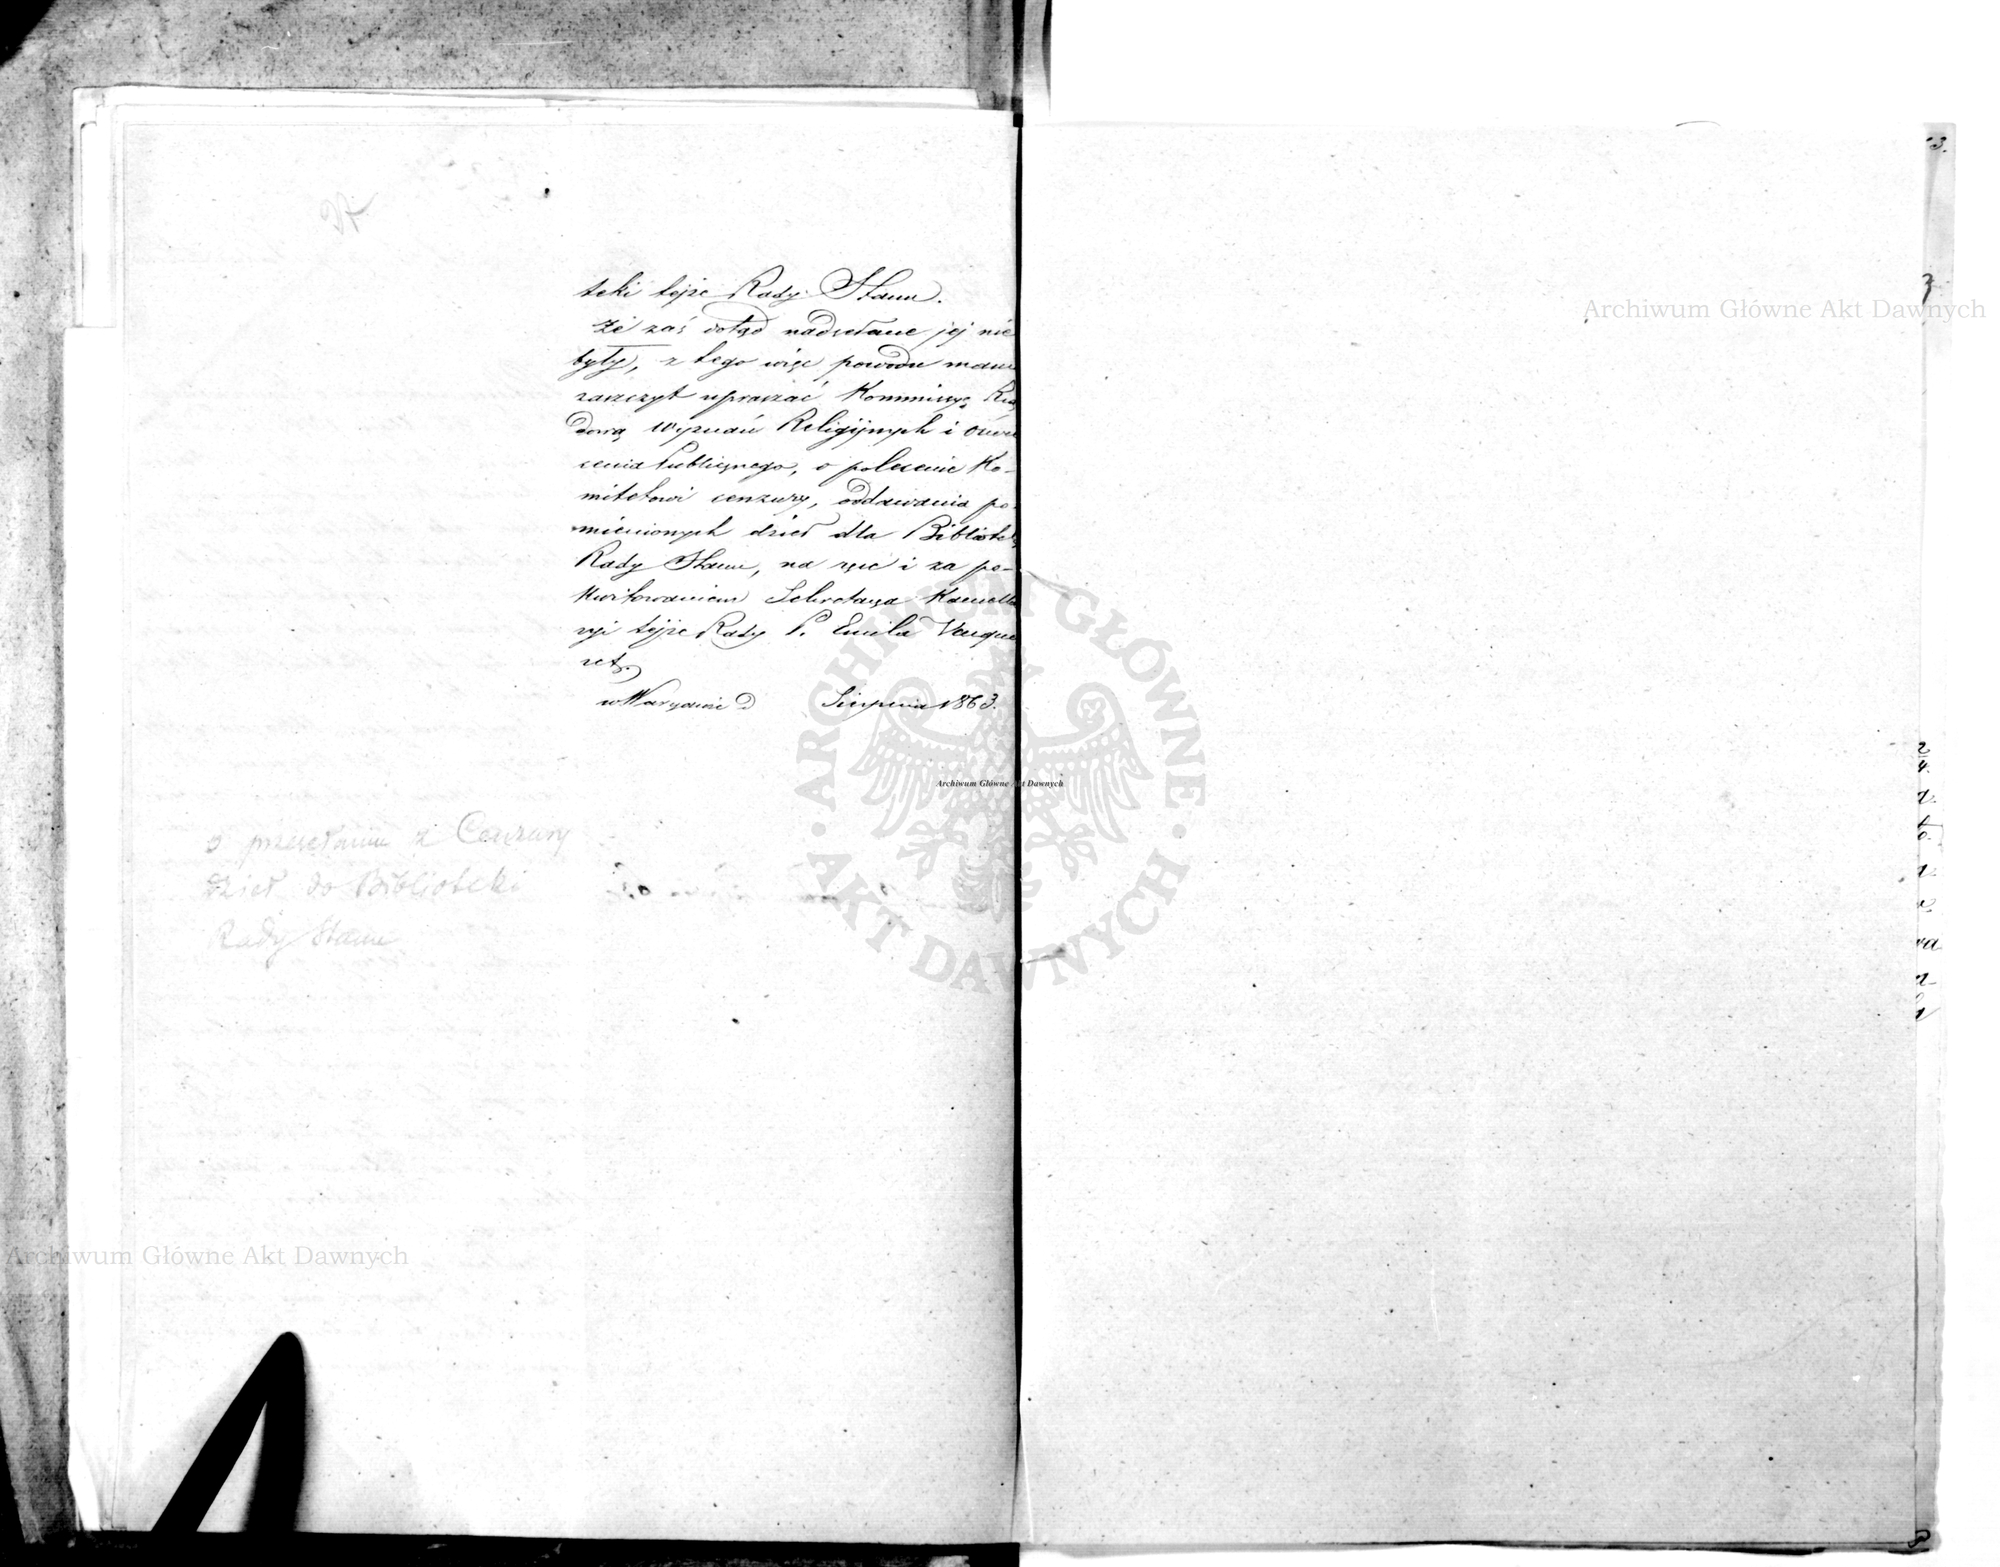 teki tejże Rady Stanu.
Że zaś dotąd nadsełane jej nie
były, z tego więc powodu mam
zaszczyt upraszać Kommissyą Rzą
dową Wyznań Religijnych i Oświe
cenia Publicznego, o polecenie Ko-
mitetowi cenzury, oddawania po-
mienionych dzieł dla Biblioteki
Rady Stanu, na ręce i za po-
kwitowaniem Sekretarza Kancella
ryi tejże Rady P. Emila Vauque
ret.
w Warszawie d Sierpnia 1863.
o przesełaniu z Cenzury
dzieł do Biblioteki
Rady Stanu
Archiwum Główne Akt Dawnych
Archiwum Główne Akt Dawnych
Archiwum Główne Akt Dawnych
ARCHIWUM GŁÓWNE
AKT DAWNYCH